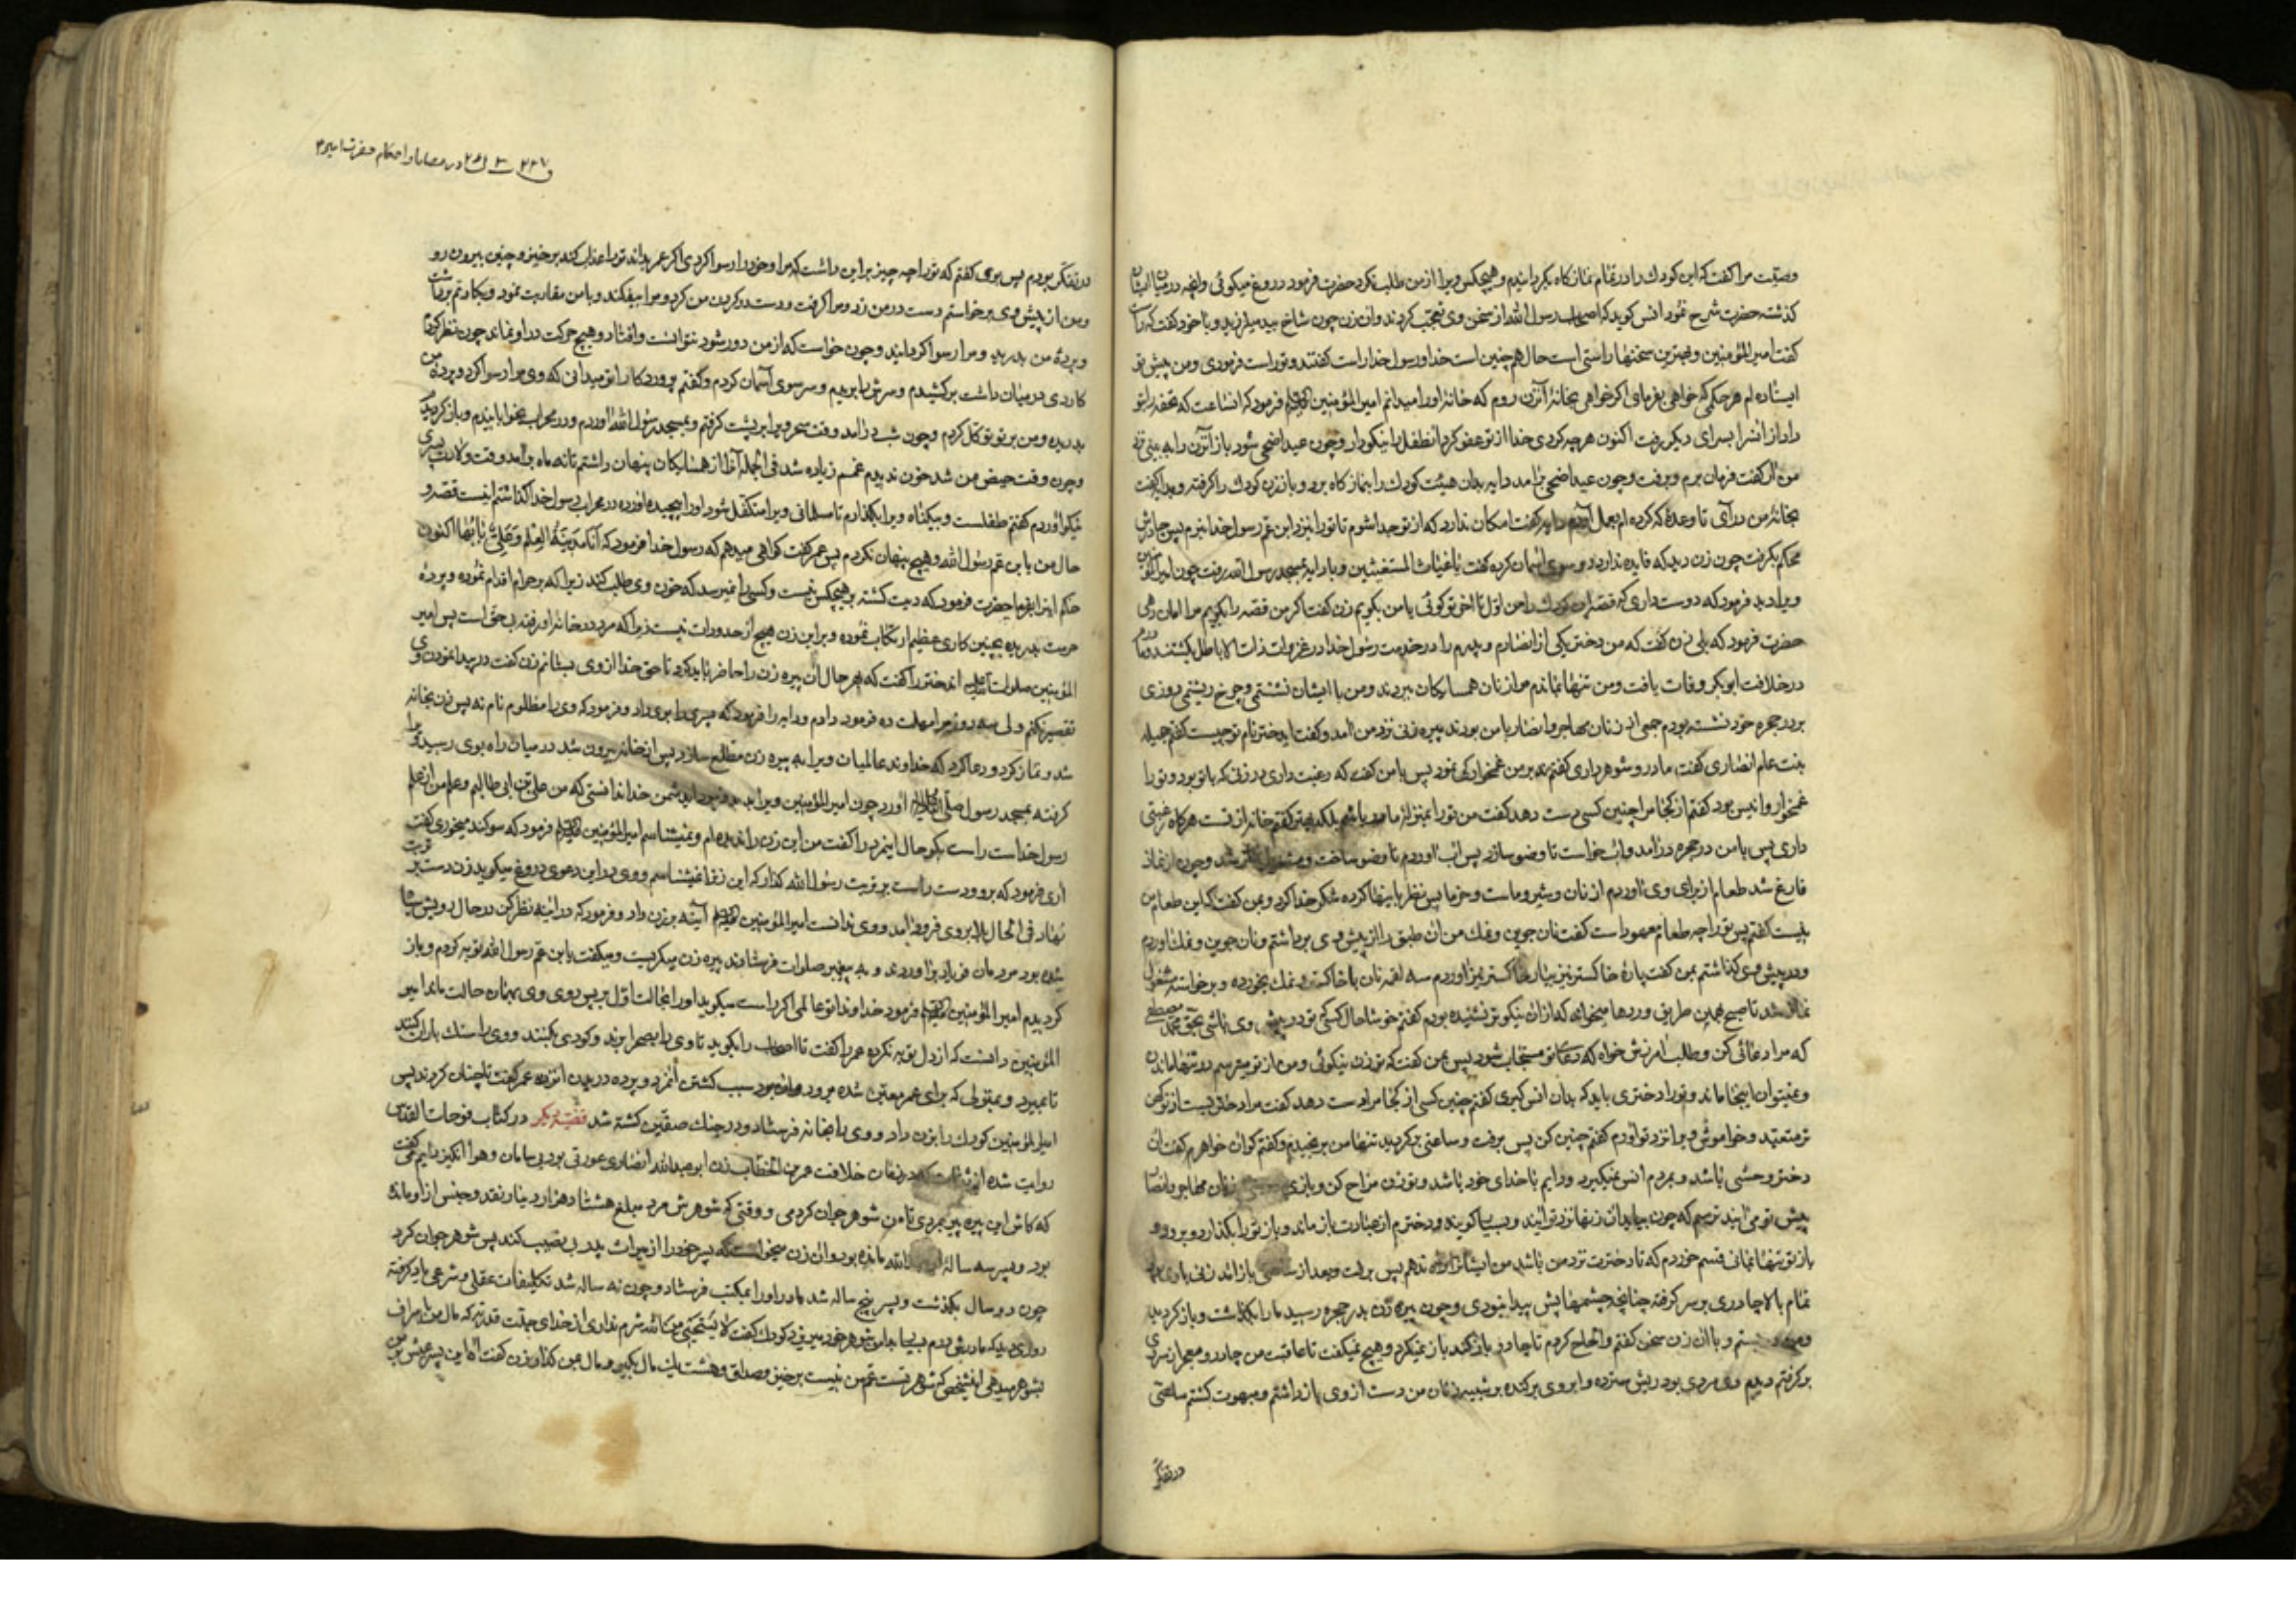 وصیت مرا کفت که این کودك را در تمام نماز کاه بکردانیدم و هیچکس ویرا از من طلب نکرد حضرت فرمود دروغ میکوئی وانچه در میان ایشان
کذشته حضرت شرح نمود انس کوید که اصحاب رسول الله از سخن وی تعجب کردند وان زن چون شاخ بید میلرزید و با خود کفت که راست
کفت امیر المؤمنین و بهترین سخنها راستی است حال هم چنین است خدا و رسول خدا راست کفتند و تو راست فرمودی ومن پیش تو
ایستاده ام هر حکمی که خواهی بفرمای اکر خواهی بخانهٔ آنزن روم که خانهٔ او را میدانم امیر المؤمنین فرمود که انساعت که تحفه را بتو
داد از انسرا بسرای دیکر رفت اکنون هر چه کردی خدا از تو عفو کرد انطفل را نیکو دار و چون عید اضحی شود باز آنزن را به بینی نزد
من ار کفت فرمان برم و برفت و چون عید اضحی برآمد دایه بدان هیئت کودك را بنماز کاه برد و باز زن کودك را کرفته و بدایه کفت
بخانهٔ من درآی تا وعدهٔ که کرده ام بعمل آورم دایه کفت امکان ندارد که از تو جدا شوم تا تو را بنزد ابن عم رسول خدا نبرم پس چادرش
محکم بکرفت چون زن دید که فایده ندارد رو سوی آسمان کرده کفت یا غیاث المستغیثین و با دایه بمسجد رسول الله رفت چون امیر المؤمنین
ویرا دید فرمود که دوست داری که قصه این کودك را من اول تا آخر بتو کوئم یا من بکویم زن کفت اکر من قصه را بکویم مرا امان دهی
حضرت فرمود که بلی زن کفت که من دختر یکی از انصارم و پدرم را در خدمت رسول خدا در غزوات ذات الاباطل بکشتند و مادرم
در خلافت ابو بکر وفات یافت ومن تنها بماندم مرا از زنان همسایکان ببردند ومن با ایشان نشستمی و چرخ رشتمی روزی
بر در حجره خود نشسته بودم جمعی از زنان مهاجر و انصار با من بودند پیره زنی نزد من آمد و کفت ای دختر نام تو چیست کفتم جمیله
بنت عام انصاری کفت مادر و شوهر داری کفتم نه بر من غمخوارکی نمود پس با من کفت که رغبت داری در زنی که با تو بود و تو را
غمخوار و انیس بود کفتم از کجا مرا چنین کسی دست دهد کفت من تو را بمنزلهٔ مادر باشم بلکه بهتر کفتم خانه از تست هر کاه رغبتی
داری پس با من در حجره درآمد و آب خواست تا وضو سازد پس اب آوردم تا وضو ساخت و مشغول نماز شد و چون از نماز
فارغ شد طعام از برای وی آوردم از نان و شیر و ماست و خرما پس نظر باینها کرده شکر خدا کرد و بمن کفت که این طعام من
نیست کفتم پس تو را چه طعام معهود است کفت نان جوین و نمك من ان طبق را از پیش وی برداشتم ونان جوین و نمك اوردم
ودر پیش وی کذاشتم بمن کفت پارهٔ خاکستر نیز بیار خاکستر نیز آوردم سه لقمه نان با خاکستر و نمك بخورده و برخواسته مشغول
نماز شد تا صبح بهمین طریق وردها میخواند که از ان نیکوتر نشنیده بودم کفتم خوشا حال کسی که تو در پیش وی باشی بحق محمد مصطفی
که مرا دعائی کن و طلب آمرزش خواه که دعای تو مستجاب شود پس بمن کفت که تو زن نیکوئی ومن از تو میترسم در تنها ماندن
و نمیتوان اینجا ماند و تو را دختری باید که بدان انس کیری کفتم چنین کسی از کجا مرا دست دهد کفت مرا دختریست از تو کهن
تر متعبد و خواموش ویرا نزد تو اورم کفتم چنین کن پس برفت و ساعتی برکردید تنها من برنجیدم و کفتم کو ان خواهرم کفت ان
دختر وحشی باشد و بمردم انس نمیکیرد و دایم با خدای خود باشد و تو زن مزاح کن و بازی زنان مهاجر و انصار
پیش تو می آیند ترسم که چون بیاید ان زنها نزد تو آیند و بسیار کویند و دخترم از عبادت باز ماند و باز تو را بکذارد و برود و
باز تو تنها بمانی قسم خوردم که تا دخترت نزد من باشد من ایشانرا راه ندهم پس برفت و بعد از ساعتی باز آمد زنی با وی
تمام بالا چادری بر سر کرفته چنانچه چشمهایش پیدا نبودی و چون پیره زن بدر حجره رسید ما را بکذاشت و باز کردید
ومن در بستم و با ان زن سخن کفتم و الحاح کردم تا چادر باز کند باز نمیکرد و هیچ نمیکفت تا عاقبت من چادر و معجر از سر وی
برکرفتم دیدم وی مردی بود ریش سترده و ابروی برکنده بر شبیه زنان من دست از وی باز داشتم و مبهوت کشتم ساعتی
در تفکر
در قضایا و احکام حضرت امیر ۳
در تفکر بودم پس بوی کفتم که تو را چه چیز بر این داشت که مرا و خود را رسوا کردی اکر عمر بداند تو را عذاب کند برخیز و چنین بیرون رو
ومن از پیش وی برخواستم دست در من زد و مرا کرفت و دست در کردن من کرد و مرا بیفکند و با من مقاربت نمود و بکارتم برداشت
و پردهٔ من بدرید و مرا رسوا کردانید و چون خواست که از من دور شود نتوانست وافتاد و هیچ حرکت در او نماند چون نظر کردم
کاردی در میان داشت برکشیدم و سرش را بریدم و سر سوی آسمان کردم و کفتم پروردکارا تو میدانی که وی مرا رسوا کرد و پردهٔ من
بدریده ومن بر تو توکل کردم و چون شب درآمد وقت سحر ویرا بر پشت کرفتم و بمسجد رسول الله آوردم ودر محراب بخوابانیدم و باز کردیدم
و چون وقت حیض من شد خون ندیدم غمم زیاده شد فی الجمله آنرا از همسایکان پنهان داشتم تا نه ماه برآمد وقت ولادت پسری
نیکو آوردم کفتم طفلست و بیکناه ویرا بکذارم تا مسلمانی ویرا متکفل شود او را پیچیده آورده در محراب رسول خدا کذاشتم اینست قصه و
حال من یا بن عم رسول الله و هیچ پنهان نکردم پس عمر کفت کواهی میدهم که رسول خدا فرمود که انا مدینة العلم وعلی بابها اکنون
حکم اینرا بفرما حضرت فرمود که دیت کشته بر هیچکس نیست و کسی را نمیرسد که خون وی طلب کند زیرا که بر حرام اقدام نموده و پردهٔ
حرمت بدریده بچنین کاری عظیم ارتکاب نموده و بر این زن هیچ از حدورات نیست زیرا که مرد در خانهٔ او رفته بحق است پس امیر
المؤمنین صلوات الله علیه اندختر را کفت که بهر حال ان پیره زن را حاضر باید کرد تا حق خدا از وی بستانم زن کفت در پیدا نمودن وی
تقصیر نکنم ولی سه روز مرا مهلت ده فرمود دادم و دایه را فرمود که پسر را بوی داد و فرمود که وی را مظلوم نام نه پس زن بخانه
شد و نماز کرد و دعا کرد که خداوند عالمیان ویرا به پیره زن مطلع سازد پس از خانه بیرون شد در میان راه بوی رسید ویرا
کرفته بمسجد رسول صلی الله علیه آورد چون امیر المؤمنین ویرا بدید فرمود ای دشمن خدا ندانستی که من علی بن ابی طالبم و علم من از علم
رسول خداست راست بکو حال اینمرد را کفت من این زن را ندیده ام و نمیشناسم امیر المؤمنین فرمود که سوکند میخوری کفت
اری فرمود که برو و دست راست بر تربت رسول الله کذار که این زنرا نمیشناسم و وی در این دعوی دروغ میکوید زن دست بر تربت
نهاد فی الحال بلا بر وی فرود آمد و وی ندانست امیر المؤمنین آینه بزن داد و فرمود که در اینه نظر کن در حال رویش سیاه
شده بود مردمان فریاد برآوردند و بر پیغمبر صلوات فرستادند پیره زن میکریست و میکفت یا بن عم رسول الله توبه کردم و باز
کردیدم امیر المؤمنین فرمود خداوندا تو عالمی اکر راست میکوید او را بحالت اول بر پس روی وی بهمان حالت ماند امیر
المؤمنین دانست که از دل توبه نکرده عمر را کفت تا اصحاب را بکوید تا وی را بصحرا برند و کودی بکنند و وی را سنك باران کنند
تا بمیرد و بمقتولی که برای عمر معین شده بود سبب کشتن آنمرد و پرده دریدن انزن عمر کفت تا چنان کردند پس
امیر المؤمنین کودك را بزن داد و وی را بخانه فرستاد و در جنك صفین کشته شد قضیه دیکر در کتاب فتوحات القدس
روایت شده از ثقات که در زمان خلافت عمر بن الخطاب زن ابو عبد الله انصاری عورتی بود بی سامان و هوا انکیز دایم میکفت
که کاش این پیره پیر بمردی تا من شوهر جوان کردمی و وقتی که شوهرش مرد مبلغ هشتاد هزار دینار نقد و جنس از او مانده
بود و پسر سه سالهٔ از ابو عبد الله مانده بود وان زن میخواست که پسر خود را از میراث پدر بی نصیب کند پس شوهر جوان کرد
چون دو سال بکذشت و پسر پنج ساله شد مادر او را بمکتب فرستاد و چون نه ساله شد تکلیفات عقلی و شرعی یاد کرفته
روزی دید که مادرش درم بسیار بدان شوهر خود میریزد کودك کفت لا تستحیی من الله شرم نداری از خدای جلت قدرته که مال من باسراف
بشوهر میدهی اینشخص که شوهر تست عم من نیست برخیز و صداق و هشت یك مال بکیر و مال من کذار زن کفت اکر این پسر عیش من